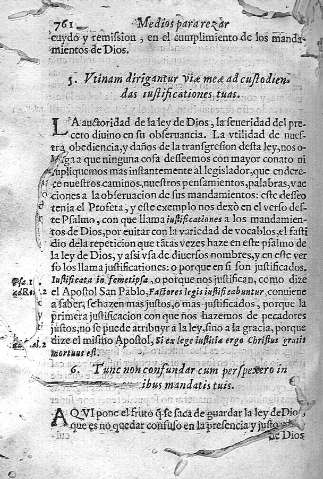 761 Medios para rezar
cuydo y remission, en el cumplimiento de los manda-
mientos de Dios.
5. Vtinam dirigantur viæ meæ ad custodien-
das iustificationes tuas.
LA auctoridad de la ley de Dios, la seueridad del pre-
ceto diuino en su obseruancia. La vtilidad de nues-
tra obediencia, y daños de la transgresion desta ley, nos o-
a que ninguna cosa desseemos con mayor conato ni
supliquemos mas instantemente al legislador, que endere-
ce nuestros caminos, nuestros pensamientos, palabras, y ac
ciones a la obseruacion de sus mandamientos: este desseo
tenia el Profeta, y este exemplo nos dexò en el verso des-
te Psalmo, con que llama iustificationes a los mandamien-
tos de Dios, por euitar con la variedad de vocablos, el fasti
dio dela repeticion que tãtas vezes haze en este psalmo de
la ley de Dios, y assi vsa de diuersos nombres, y en este ver
so los llama justificationes: o porque en si son justificados.
Iustificata in semetipsa, o porque nos justifican, como dize
el Apostol San Pablo, Factores legis iustificabuntur, conuiene
a saber, se hazen mas justos, o mas justificados, porque la
primera justificacion con que nos hazemos de pecadores
justos, no se puede atribuyr a la ley, sino a la gracia, porque
dize el mismo Apostol, Si ex lege iustitia ergo Christus gratis
mortuus est.
6. Tunc non confundar cum perspexero in
ibus mandatis tuis.
AQVI pone el fruto q̃ se saca de guardar la ley de Dios,
que es no quedar confuso en la presencia y justo
de Dios